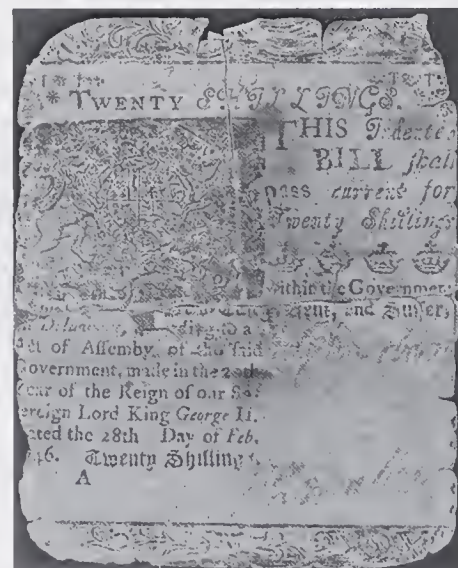 * TWENTY SHILLINGS.
THIS Indented
BILL shall
pass current for
Twenty Shillings
within the Government
Kent, and Sussex,
on Delaware, according to a
Act of Assemby, of the said
overnment, made in the 20th
ear of the Reign of our So
ereign Lord King George II.
ated the 28th Day of Feb.
46. Twenty Shillings
A